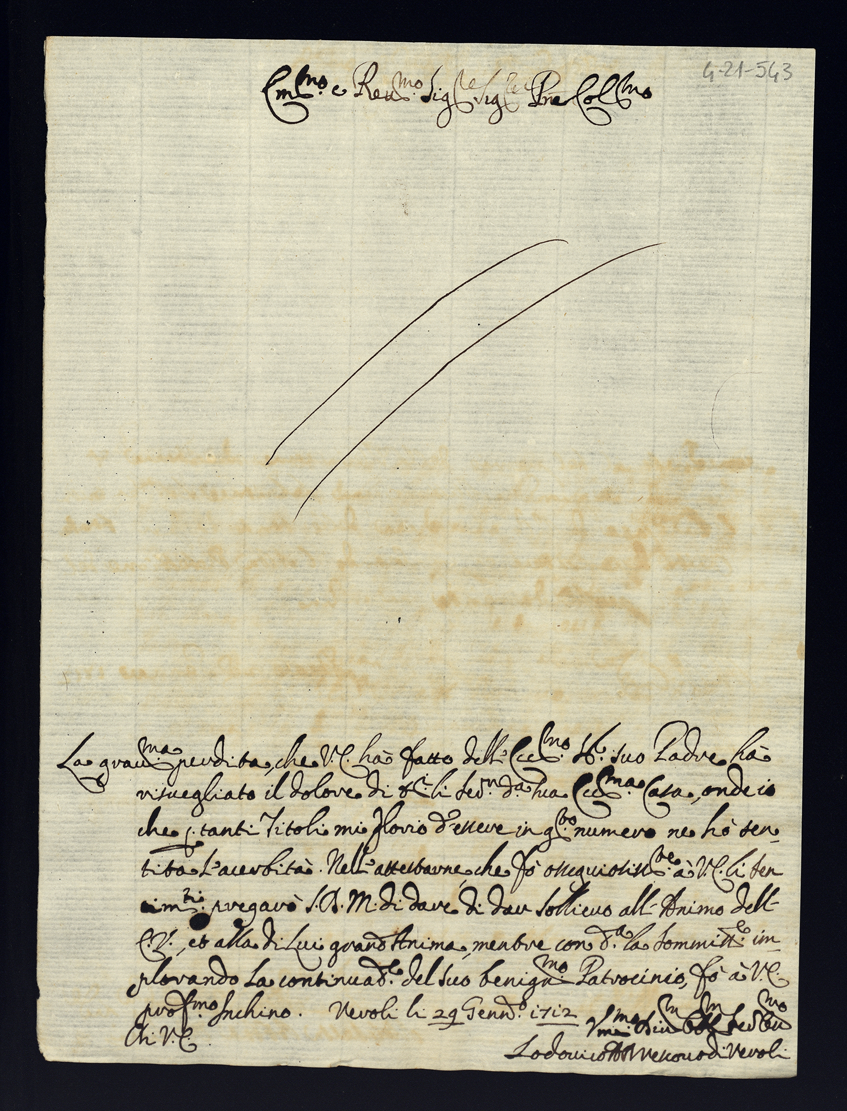 4-21-543
Em.mo e Reu.mo Sig.re Sig.re Pre Col.mo
La grau.ma perdita, che V.E. hà fatto dell' Ecc.mo Sig. suo Padre hà
risuegliato il dolore di t.ti li Ser.ri d.a sua Ecc.ma Casa, onde io
che p. tanti Titoli mi glorio d'essere in q.to numero ne hò sen
tita l'acerbità. Nell'attestarne, che fò ossequiosiss.te à V.E. li sen
tim.ti pregarò S.D.M. di dare di dar sollieuo all' Animo dell'
E.V., et alla di Lui grand' Anima, mentre con d.a la Sommiss.e im
plorando la continuaz.e del suo benign.mo Patrocinio, fò à V.E.
prof.mo Inchino. Nevoli li 29 Genn.o 1712
Di V.E.
Lodovico Vescouo di Nevoli